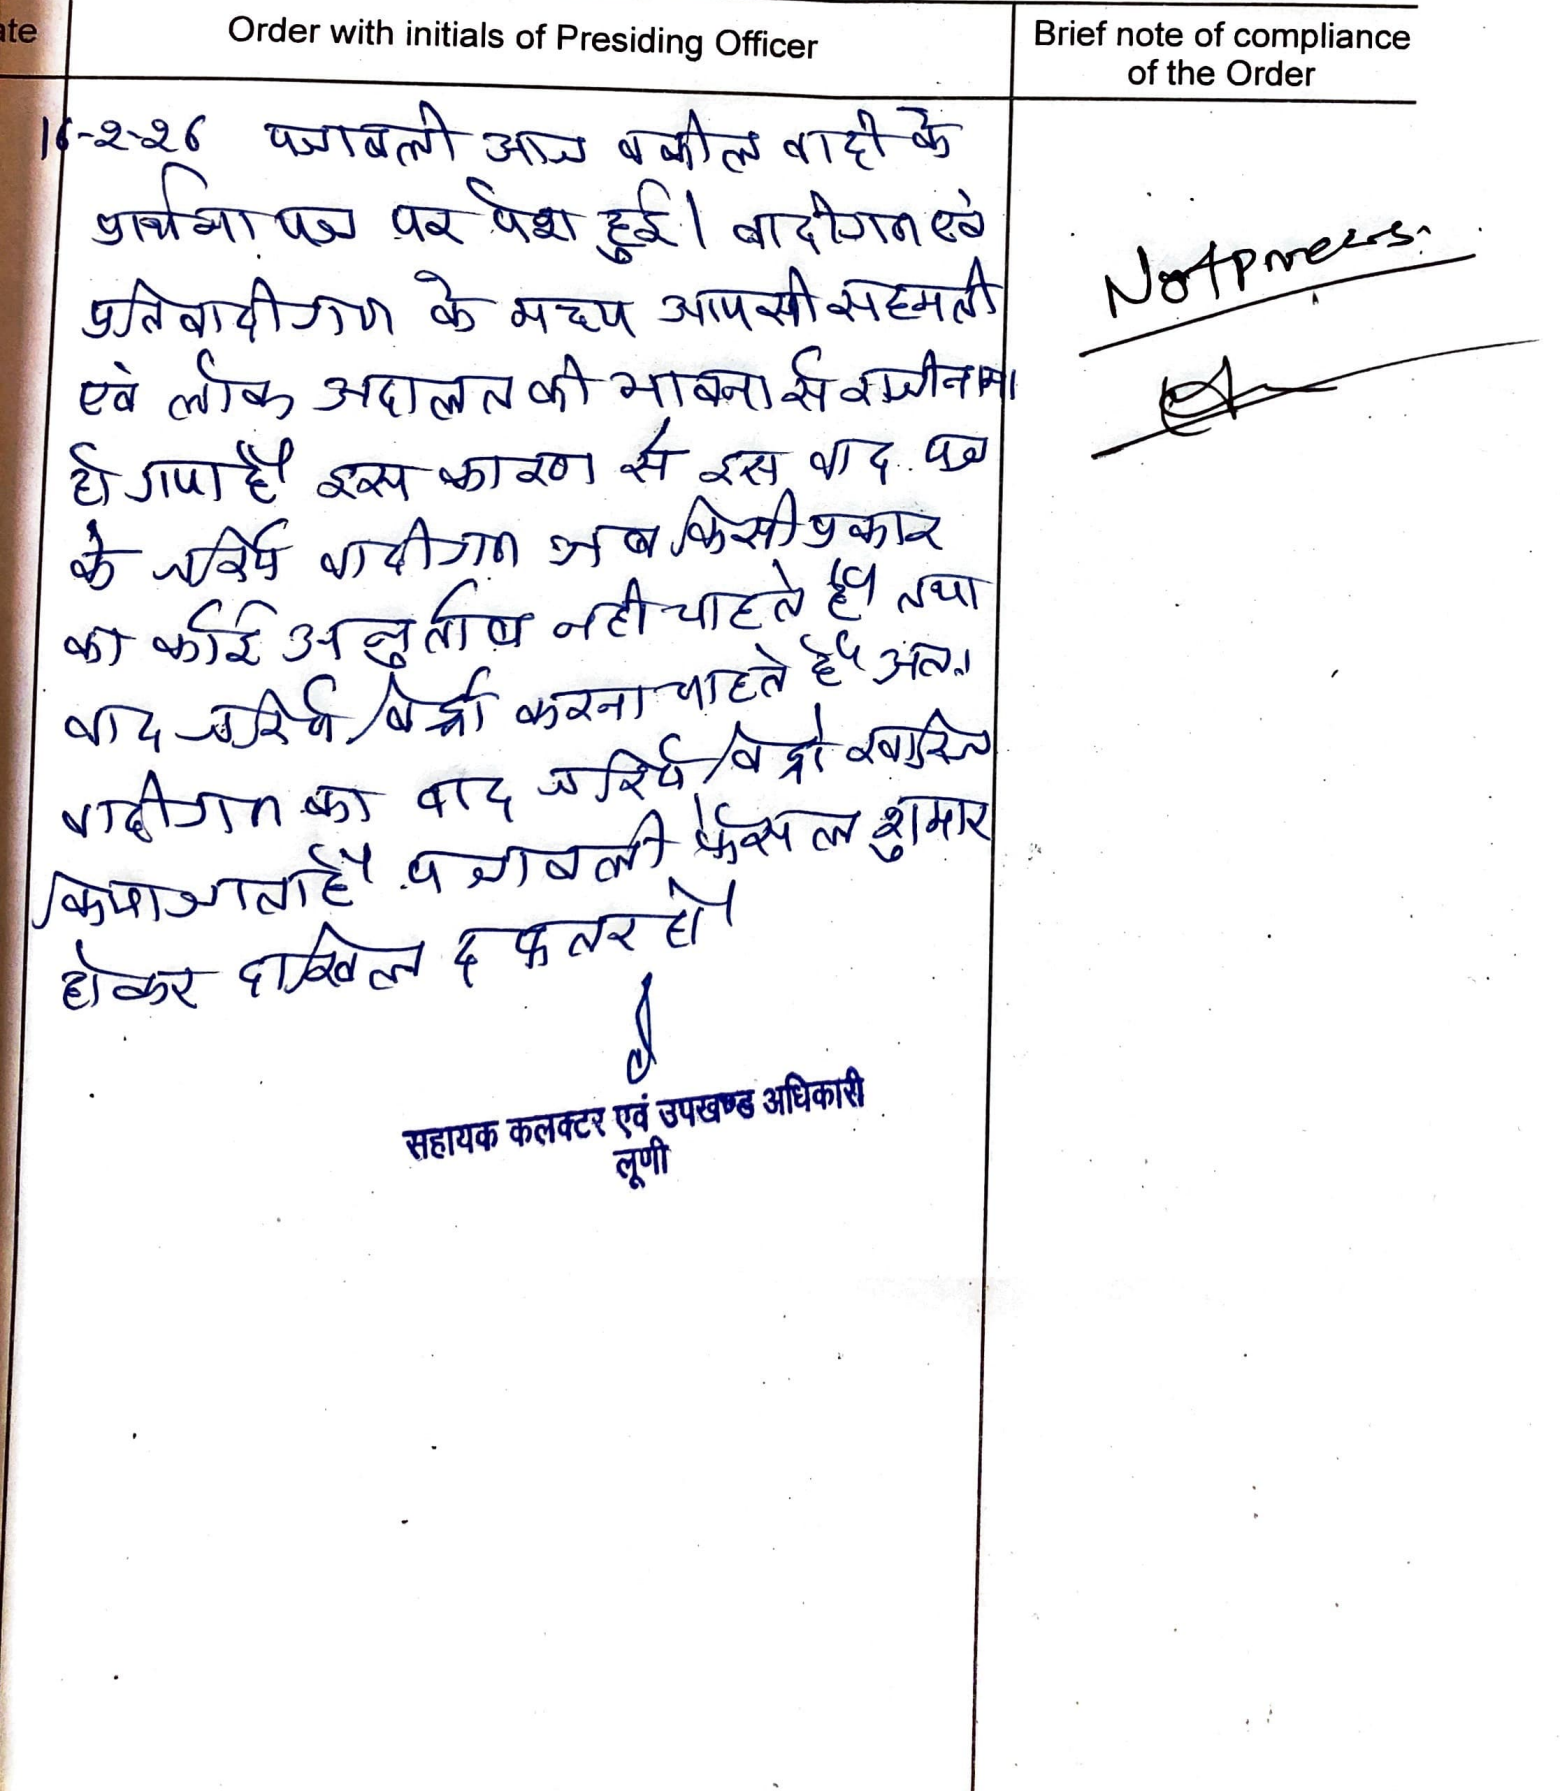 ate
Order with initials of Presiding Officer
Brief note of compliance
of the Order
16-2-26 पत्रावली आज वकील वादी के
प्रार्थना पत्र पर पेश हुई। वादीगण एवं
प्रतिवादीगण के मध्य आपसी सहमती
एवं लोक अदालत की भावना से राजीनामा
हो गया है। इस कारण से इस वाद पत्र
के जरिये वादीगण अब किसी प्रकार
का कोई अनुतोष नही चाहते है। तथा
वाद जरिये विड्रो करना चाहते है। अतः
वादीगण का वाद जरिये विड्रो खारिज
किया जाता है। पत्रावली फैसल शुमार
होकर दाखिल दफतर हो।
सहायक कलक्टर एवं उपखण्ड अधिकारी
लूणी
Not press.